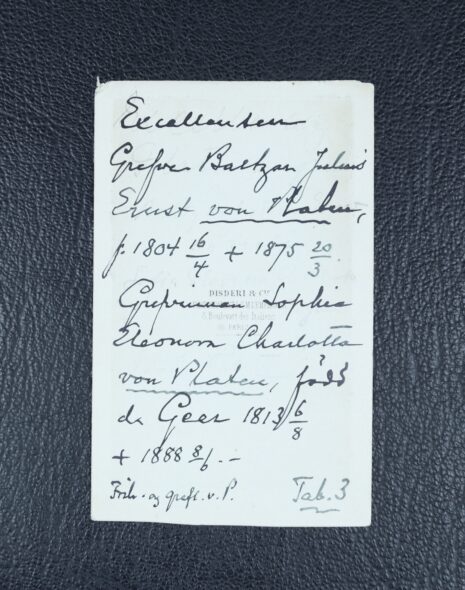 Excellensen
Grefve Baltzar Julius
Ernst von Platen,
f. 1804 16/4 + 1875 20/3.
DISDERI & Cie
8 Boulevart des Italiens
PARIS
Grefvinnan Sophie
Eleonora Charlotta
von Platen, född
de Geer 1813 6/8
+ 1888 8/6. -
Frih. og grefl. v. P. Tab. 3